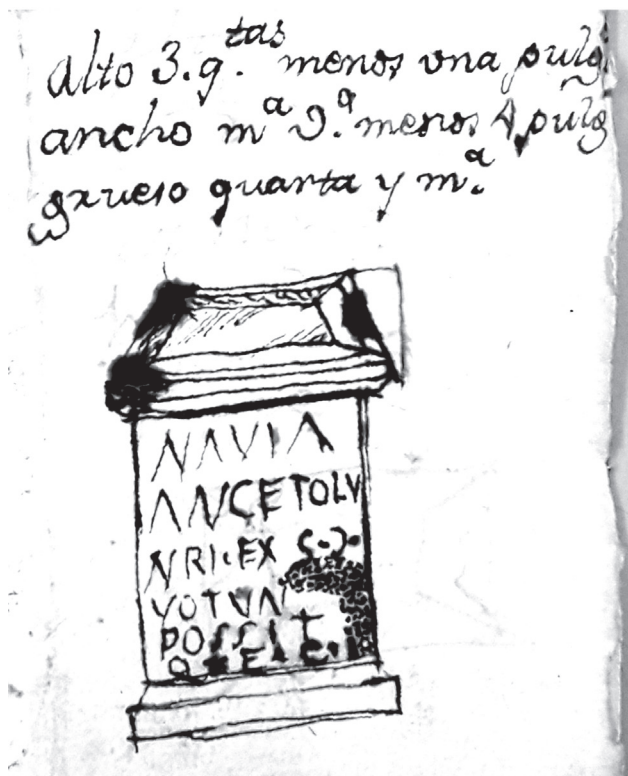 alto 3. q.tas menos vna pulg
ancho m.a v.a menos 4 pulg
grueso quarta y m.a
NAVIA
ANCETOLV
NRI·EX S·Ɔ·
VOTVM
POSSIT
Q·E·C·